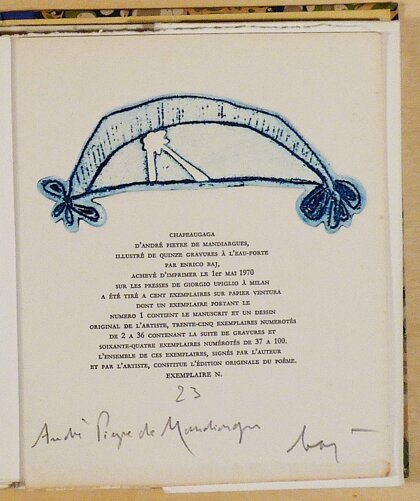 CHAPEAUGAGA
D'ANDRÉ PIEYRE DE MANDIARGUES,
ILLUSTRÉ DE QUINZE GRAVURES À L'EAU-FORTE
PAR ENRICO BAJ,
ACHEVÉ D'IMPRIMER LE 1er MAI 1970
SUR LES PRESSES DE GIORGIO UPIGLIO À MILAN
A ÉTÉ TIRÉ A CENT EXEMPLAIRES SUR PAPIER VENTURA
DONT UN EXEMPLAIRE PORTANT LE
NUMERO 1 CONTIENT LE MANUSCRIT ET UN DESSIN
ORIGINAL DE L'ARTISTE, TRENTE-CINQ EXEMPLAIRES NUMEROTÉS
DE 2 A 36 CONTENANT LA SUITE DE GRAVURES ET
SOIXANTE-QUATRE EXEMPLAIRES NUMÉROTÉS DE 37 A 100.
L'ENSEMBLE DE CES EXEMPLAIRES, SIGNÉS PAR L'AUTEUR
ET PAR L'ARTISTE, CONSTITUE L'ÉDITION ORIGINALE DU POÈME.
EXEMPLAIRE N.
23
André Pieyre de Mandiargues baj